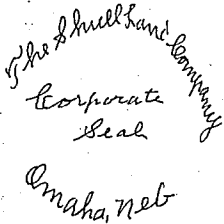 The Shull Land Company
Corporate
Seal
Omaha, Neb